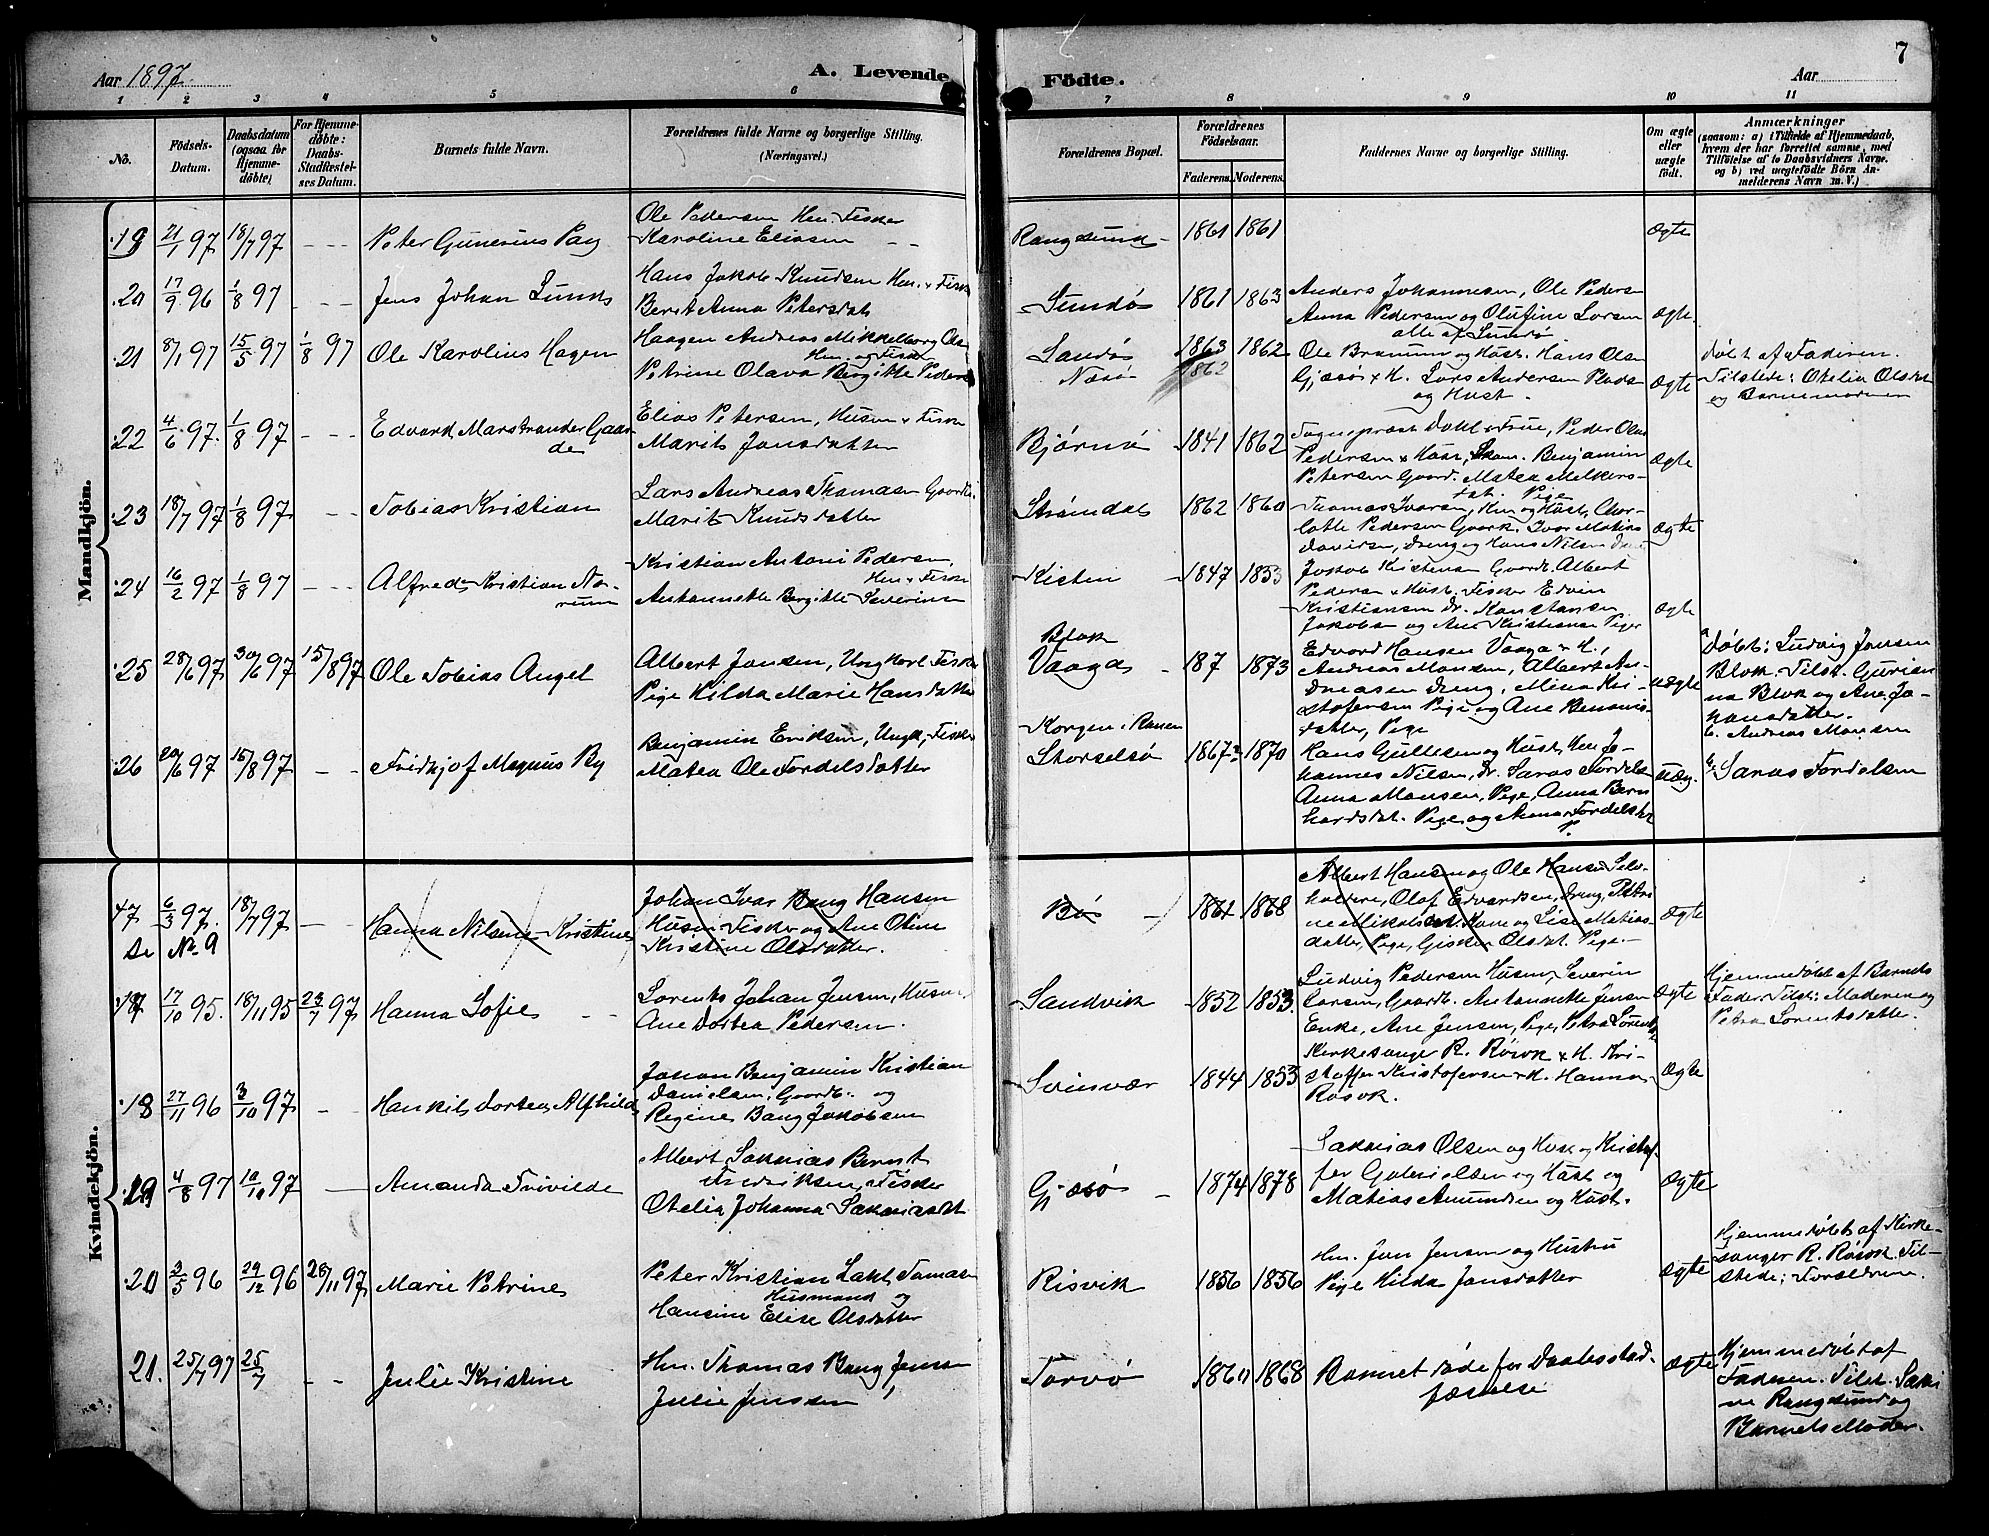 Aar 1897
A. Levende
Födte.
Aar
7
1 2 3 4 5 6 7 8 9 10 11
No.
Födsels-
Datum.
Daabsdatum
(ogsaa for
Hjemme-
döbte)
For Hjemme-
döbte:
Daabs-
Stadfæstel-
ses Datum.
Barnets fulde Navn.
Forældrenes fulde Navne og borgerlige Stilling.
(Næringsvei.)
Forældrenes Bopæl.
Forældrenes
Födselsaar.
Faderens. Moderens.
Faddernes Navne og borgerlige Stilling.
Om ægte
eller
uægte
födt.
Anmærkninger
(saasom: a) i Tilfælde af Hjemmedaab,
hvem der har forrettet samme, med
Tilföielse af to Daabsvidners Navne.
og b) ved uægtefödte Börn An-
melderens Navn m. V.)
Mandkjön.
19 21/1 97 18/7 97 - - - Peter Gunerius Pay
Ole Pedersen Hm. Fisker
Karoline Eliasen - -
Rangsund 1861 1861 ægte
20 17/9 96 1/8 97 - - - Jens Johan Lunds
Hans Jakob Knudsen Hm. + Fisker
Berit Anna Petersdat
Sundø 1861 1863
Anders Johannesen, Ole Pedersen
Anna Pedersen og Olufine Larsen
alle af Sundø
ægte
21 8/1 97 15/5 97 1/8 97 Ole Karolius Hagen
Haagen Andreas Mikkelborg Ols
Hm. og Fisker
Petrine Olava Bergitte Peders
Sandø
Næsø
1863 1862
1862
Ole Brannum og Hust. Hans Olsen
Gjæsø + H. Lars Andersen Plads
og Hust.
ægte
Døbt af Faderen.
Tilstede: Otelia Olsdat
og Barnemoderen
22 4/6 97 1/8 97 - - - Edvard Marstrander Gaar
de
Elias Petersen, Husm + Fisker
Marit Jonsdatter
Bjørnø 1841 1862
Sogneprest Dahl + Frue, Peder Olai
Pedersen + Hust, Skom. Benjamin
Petersen Gaard. Matea Melkers-
dat. Pige
ægte
23 18/7 97 1/8 97 - - - Tobias Kristian
Lars Andreas Thomasen Gaardb.
Marit Knudsdatter
Strømdal 1862 1860
Thomas Ivarsen, Hm og Hust, Char-
lotte Pedersen Gaardk. Ivar Matias
Davidsen, Dreng og Hans Nilsen Dreng
ægte
24 16/2 97 1/8 97 - - - Alfred Kristian No-
rum
Kristian Antoni Pedersen
Hm + Fisker
Antonnette Bergitte Severinsen
Kisten 1847 1853
Jakob Kristensen Gaardb. Albert
Pedersen + Hust. Fisker Edvin
Kristiansen dr. Konstanse
Jakobsen og Ane Kristianse Piger
ægte
25 28/6 97 30/6 97 15/8 97 Ole Tobias Angel
Albert Jonsen, Ungkarl Fisker
Pige Hilda Marie Hansdatter
Blok
Vaaga 187 1873
Edvard Hansen Vaaga + H.,
Andreas Monsen, Albert An-
dreasen Dreng, Mina Kri-
stofersen Pige og Ane Benonis-
datter, Pige
uægte
a Døbt: Ludvig Jonsen
Blok. Tilst. Gurian-
na Blok og Ane Jo-
hansdatter.
b. Andreas Monsen
26 20/6 97 15/8 97 - - Fridtjof Magnus By
Benjamin Eriksen, Ungk, Fisker
Matea Ole Fordelsdatter
Korgen i Ranen
Storselsø 1867? 1870
Hans Gullesen og Hust, Hm Jo-
hannes Nilsen, Dr. Saras Fordelsen
Anna Monsen, Pige, Anna Bern
hardsdat. Pige og Anna Fordelsdat
P.
uæg.
b. Saras Fordelsen
Kvindekjön.
47 6/3 97. 18/7 97 - - Hanna Nilsine Kristine
Se No 9
Johan Ivar Bang Hansen
Husm Fisker og Ane Oline
Kristine Olsdatter.
Bøs 1861 1868
Albert Hansen og Ole Hansen Selv-
holdere, Olaf Edvardsen, Dreng, Petri
ne Mikalsdat. Kone og Lise Matias-
datter, Pige, Gisken Olsdat. Pige.
ægte
17 17/10 95. 18/11 95 23/7 97 Hanna Sofie - -
Lorents Johan Jensen, Husm,
Ane Dortea Pedersen.
Sandvik 1852 1853.
Ludvig Pedersen Husm, Severin
Larsen, Gaardb. Antonnette Jensen
Enke, Ane Jensen, Pige, Petra Lorents
ægte
Hjemmedøbt af Barnets
Fader. Tilst: Moderen og
Petra Lorentsdatter.
18 27/11 96 3/10 97 - - Hankil Dortea Alfhild
Johan Benjamin Kristian
Danielsen, Gaardb. og
Regine Bang Jakobsen
Svinsvær 1844 1853
Kirkesanger R. Røsok + H. Kri-
stoffer Kristofersen + H. Hanna
Røsok.
ægte
19 4/8 97 10/10 97 - Amanda Trivilde
Albert Sakarias Bernt
Fredriksen, Fisker
Otelia Johanna Sakariasdat
Gjæsø 1874 1878
Sakarias Olsen og Hust og Kristof-
fer Gabrielsen og Hust og
Matias Amundsen og Hust.
ægte
20 3/5 96 29/12 96 28/11 97 Marie Petrine
Peter Kristian Lakl. Tomasen
Husmand og
Hansine Elise Olsdatter
Risvik 1856 1856
Hm. Jon Jensen og Hustru
Pige Hilda Jonsdatter
ægte
Hjemmedøbt af Kirke-
sanger R. Røsok. Til-
stede: Forældrene.
21. 25/7 97 25/7 - - Julie Kristine
Hm. Thomas Bang Jensen
Julie Jenssen
Torvø 1860 1868
Barnet døde før Daabsstad-
fæstelse
ægte
Hjemmedøbt af
Faderen. Tilst. Saki
ne Rangsund og
Barnets Moder.